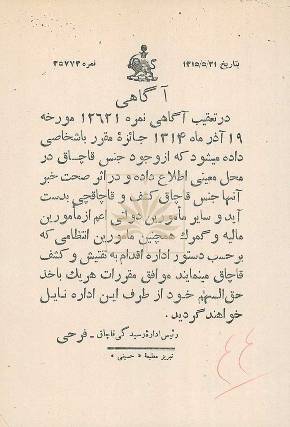 بتاریخ ۱۳۱۵/۵/۳۱ نمره ۳۵۷۷۳
آگاهی
در تعقیب آگاهی نمره ۱۲۶۲۱ مورخه
۱۹ آذر ماه ۱۳۱۴ جائزهٔ مقرر باشخاصی
داده میشود که از وجود جنس قاچاق در
محل معینی اطلاع داده و در اثر صحت خبر
آنها جنس قاچاق کشف و قاچاقچی بدست
آید و سایر مأمورین دولتی اعم از مأمورین
مالیه و گمرك همچنین مأمورین انتظامی که
بر حسب دستور اداره اقدام به تفتیش و کشف
قاچاق مینمایند موافق مقررات هر یك باخذ
حق السهم خود از طرف این اداره نایل
خواهند گردید.
رئیس ادارهٔ رسیدگی قاچاق - فرحی
تبریز مطبعهٔ «حسینی»
۴۴